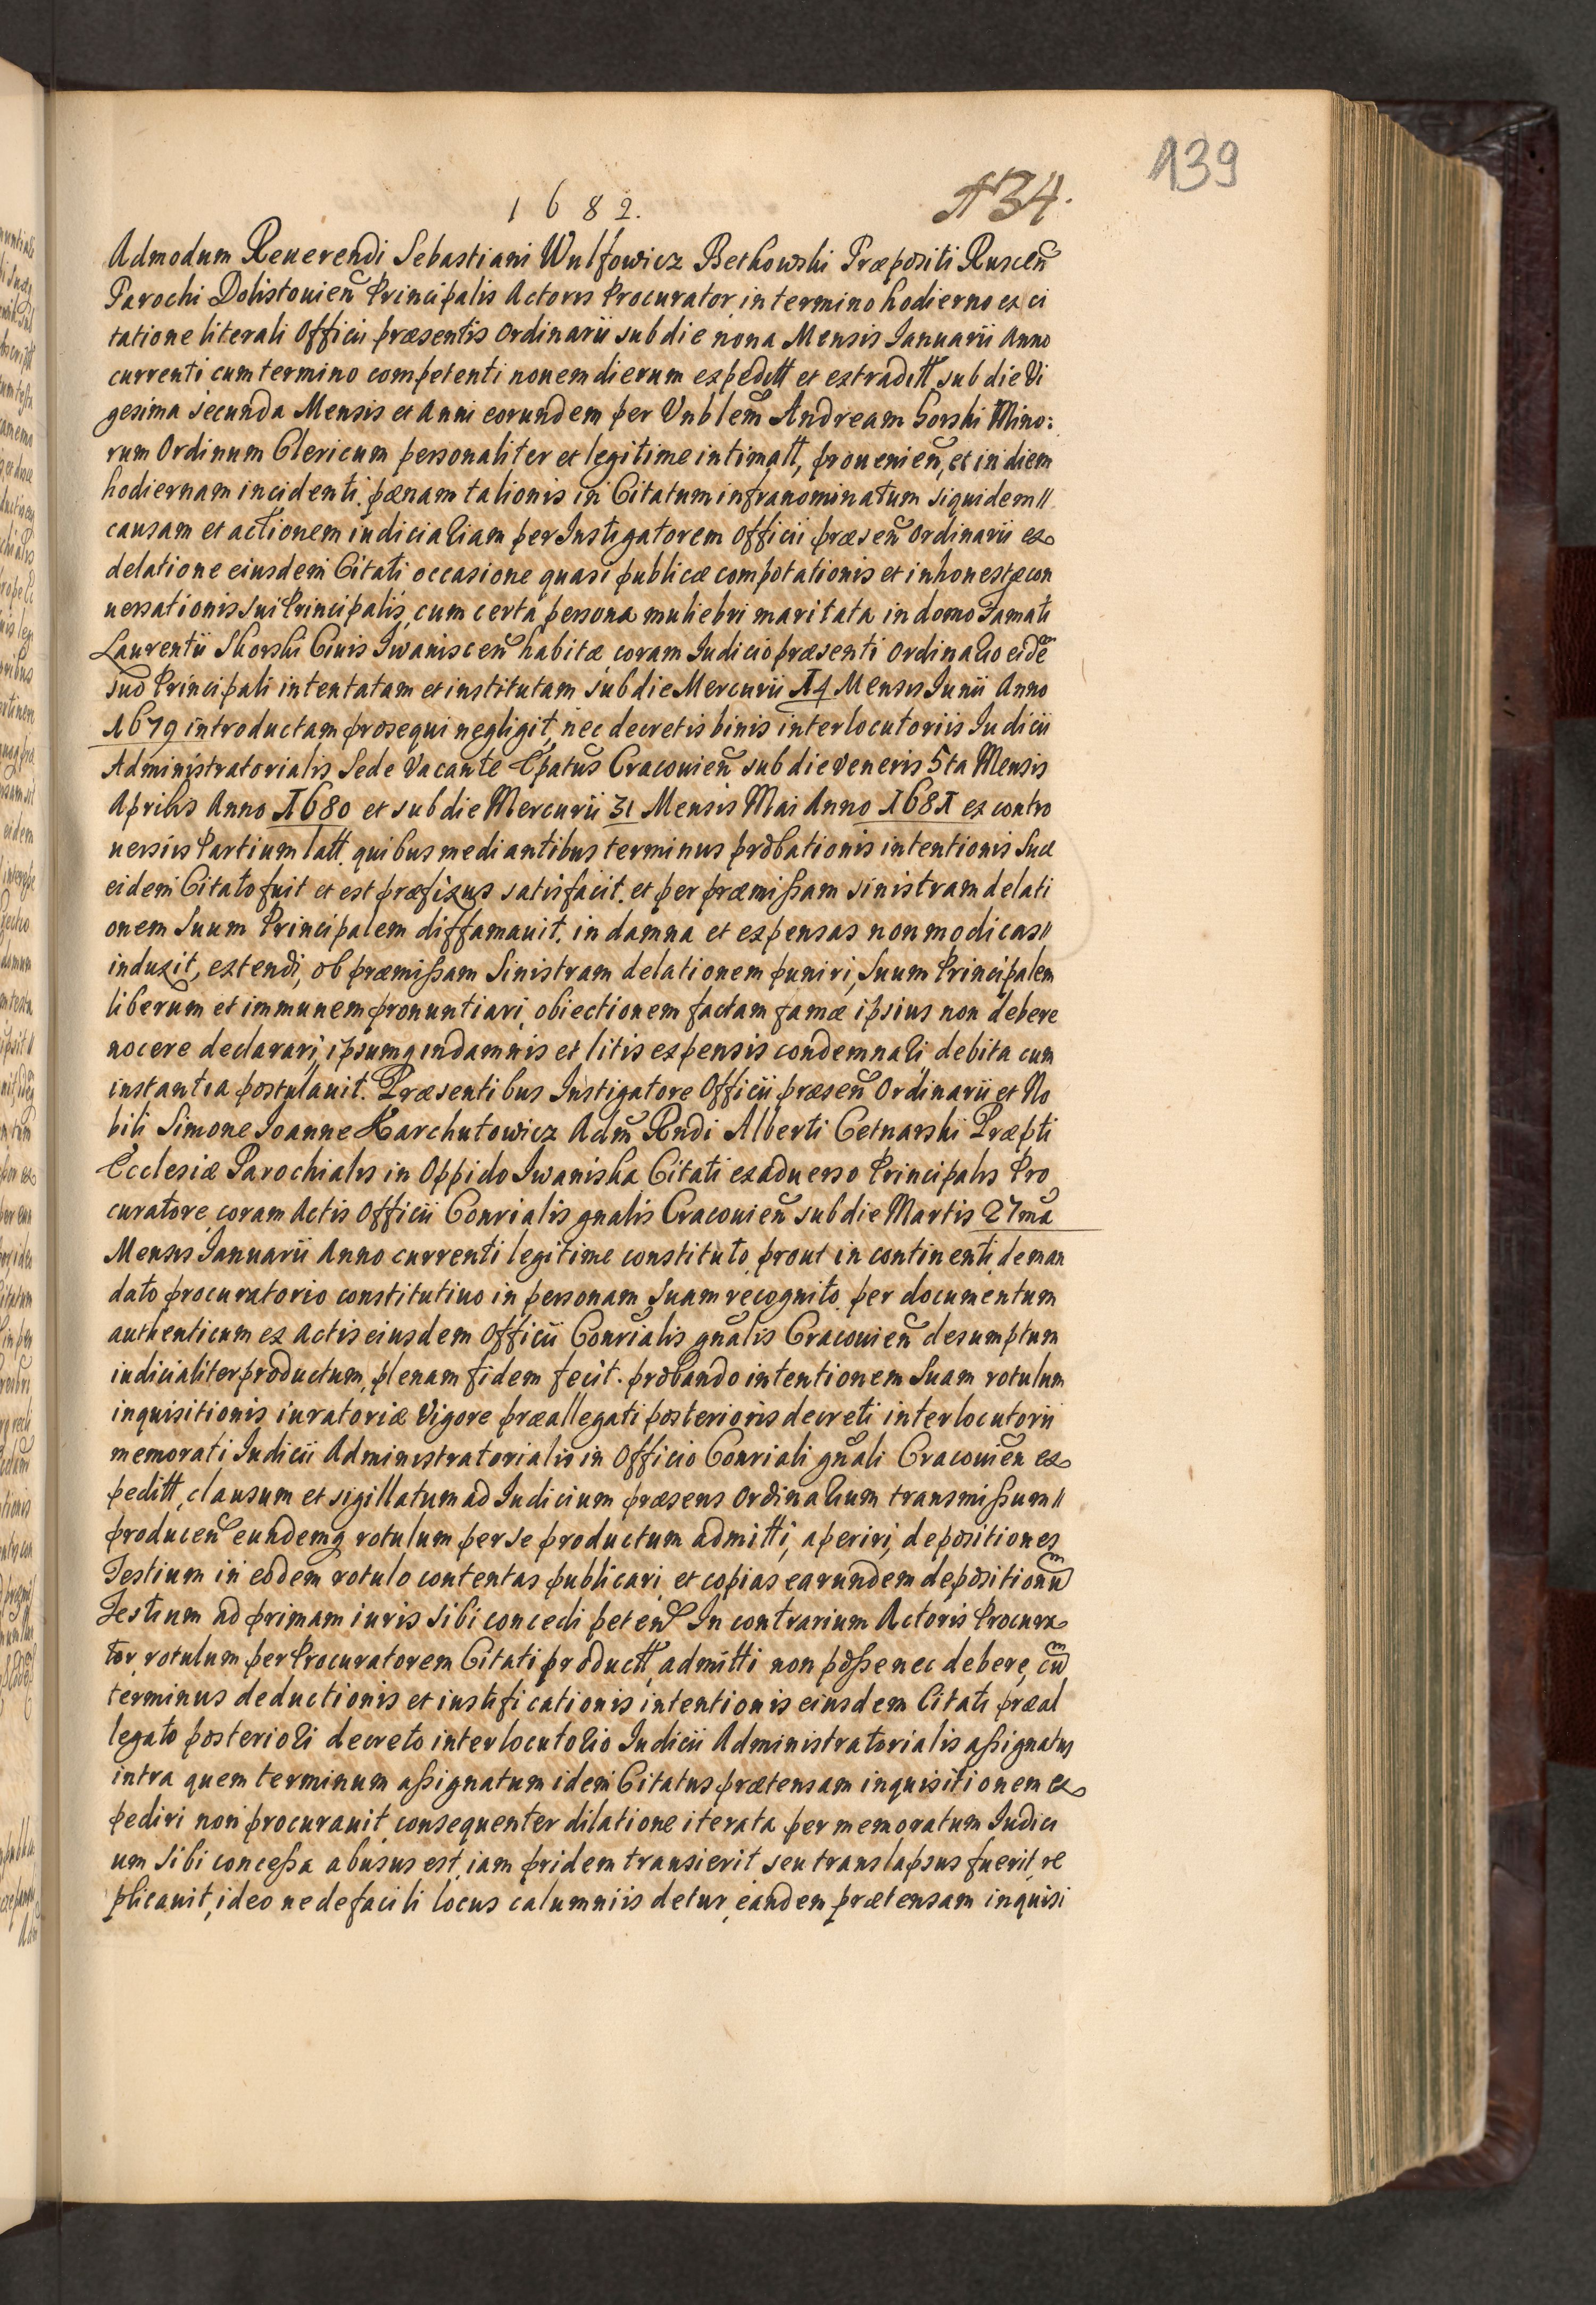 139
1682.
134.
Admodum Reuerendi Sebastiani Wulfowicz Betkowski Præpositi Ruscen̄
Parochi Dolistouien̄ Principalis Actoris Procurator, in termino hodierno ex ci
tatione literali Officii præsentis Ordinarii sub die nona Mensis Ianuarii Anno
currenti cum termino competenti nouem dierum expeditt et extraditt, sub die Vi
gesima secunda Mensis et Anni eorundem per Vnblem̄ Andream Gorski Mino:
rum Ordinum Clericum personaliter et legitime intimatt, prouenien̄, et in diem
hodiernam incidenti. pœnam talionis in Citatum infranominatum siquidem //
causam et actionem iudiciariam per Instigatorem Officii præsen̄ Ordinarii ex
delatione eiusdem Citati occasione quasi publicæ compotationis et inhonestæ con
uersationis sui Principalis, cum certa persona muliebri maritata in domo Famati
Laurentii Skorski Ciuis Iwaniscen̄ habitæ, coram Iudicio præsenti Ordinario eidē
suo Principali intentatam et institutam sub die Mercurii 14 Mensis Iunii Anno
1679 introductam prosequi negligit, nec decretis binis interlocutoriis Iudicii
Administratorialis Sede Vacante Ep̄atus Cracouien̄ sub die Veneris 5ta Mensis
Aprilis Anno 1680 et sub die Mercurii 31 Mensis Mai Anno 1681 ex contro
uersiis Partium latt. quibus mediantibus terminus probationis intentionis suæ
eidem Citato fuit et est præfixus satisfacit. et per præmissam sinistram delati
onem Suum Principalem diffamauit, in damna et expensas non modicas //
induxit, extendi, ob præmissam Sinistram delationem puniri, Suum Principalem
liberum et immunem pronuntiari, obiectionem factam famæ ipsius non debere
nocere declarari, ipsumq in damnis et litis expensis condemnari debita cum
instantia postulauit. Præsentibus Instigatore Officii præsen̄ Ordinarii et No
bili Simone Ioanne Karchutowicz Adm̄ Rndi Alberti Cetnarski Præpti
Ecclesiæ Parochialis in Oppido Iwaniska Citati ex aduerso Principalis Pro
curatore, coram Actis Officii Con̄rialis gn̄alis Cracouien̄ sub die Martis 27ma
Mensis Ianuarii Anno currenti legitime constituto, prout in continenti de man
dato procuratorio constitutiuo in personam Suam recognito, per documentum
authenticum ex Actis eiusdem Officii Con̄rialis gn̄alis Cracouien̄ desumptum
iudicialiter productum, plenam fidem fecit. probando intentionem Suam rotulum
inquisitionis iuratoriæ Vigore præallegati posterioris decreti interlocutorii
memorati Iudicii Administratorialis in Officio Con̄riali gn̄ali Cracouien̄ ex
peditt, clausum et sigillatum ad Iudicium præsens Ordinarium transmissum //
producen̄ eundemq rotulum per se productum admitti, aperiri, depositiones
Testium in eodem rotulo contentas publicari, et copias earundem depositionū
Testium ad primam iuris sibi concedi peten̄. In contrarium Actoris Procura
tor, rotulum per Procuratorem Citati productt, admitti non posse nec debere, cū
terminus deductionis et iustificationis intentionis eiusdem Citati præal
legato posteriori decreto interlocutorio Iudicii Administratorialis assignatus
intra quem terminum assignatum idem Citatus prætensam inquisitionem ex
pediri non procurauit, consequenter dilatione iterata per memoratum Iudici
um sibi concessa abusus est, iam pridem transierit seu translapsus fuerit, re
plicauit, ideo ne de facili locus calumniis detur, eandem prætensam inquisi